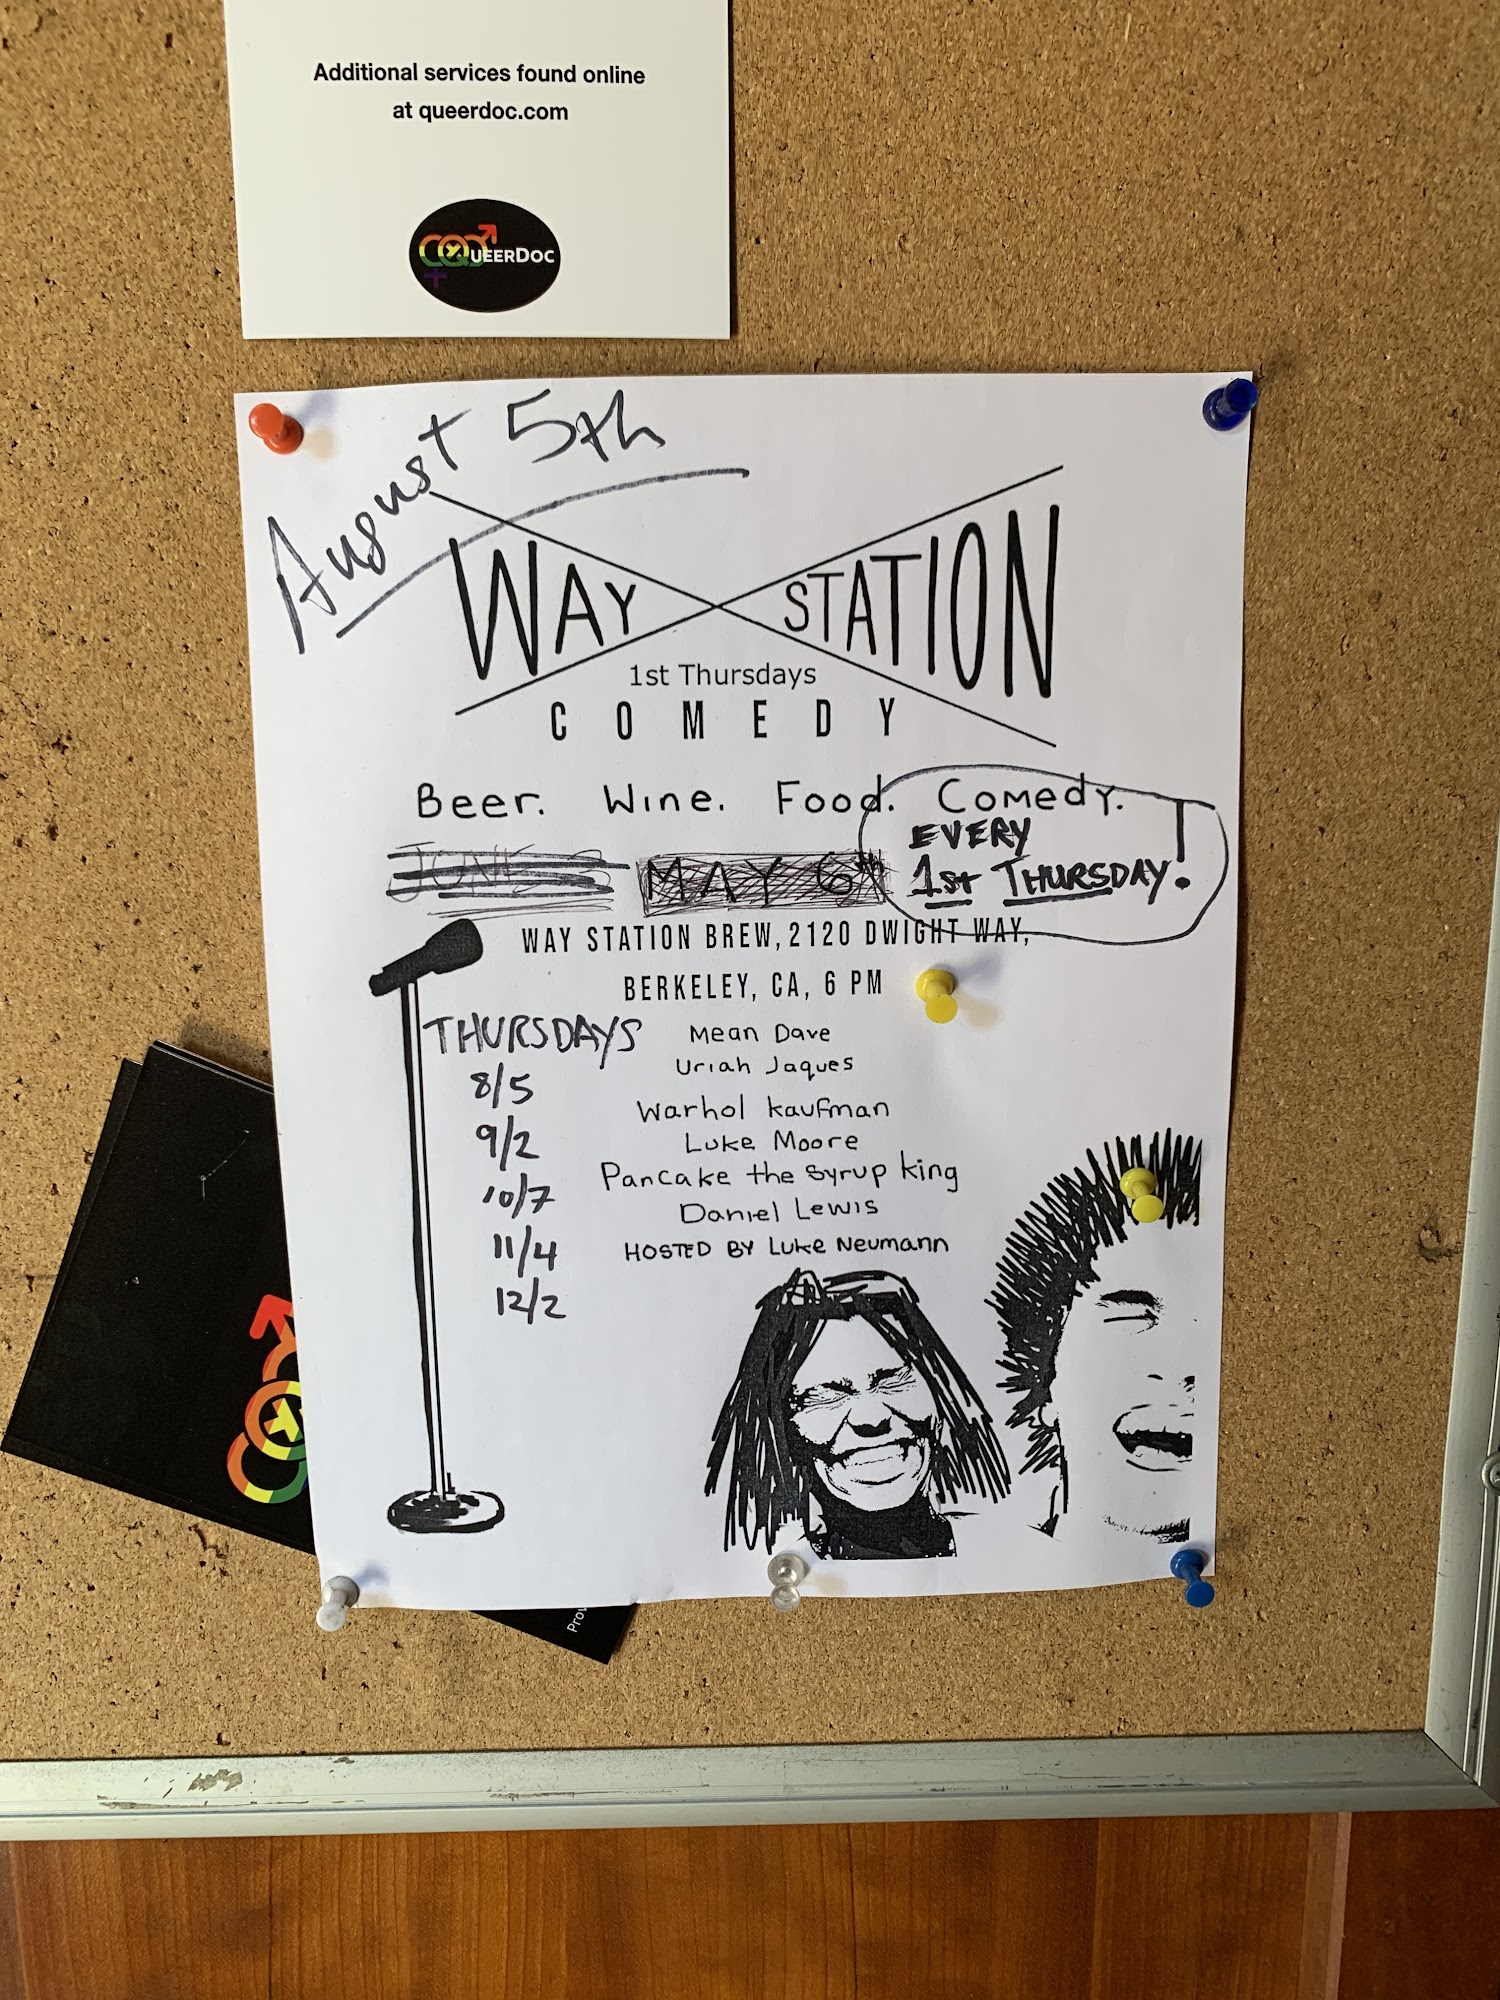 Additional services found online
at queerdoc.com
QUEERDOC
August 5th
WAY STATION
1st Thursdays
COMEDY
Beer. Wine. Food. Comedy.
JUNE
MAY 6th
EVERY
1st THURSDAY!
WAY STATION BREW, 2120 DWIGHT WAY,
BERKELEY, CA, 6 PM
THURSDAYS
8/5
9/2
10/7
11/4
12/2
Mean Dave
Uriah Jaques
Warhol Kaufman
Luke Moore
Pancake the Syrup King
Daniel Lewis
HOSTED BY Luke Neumann